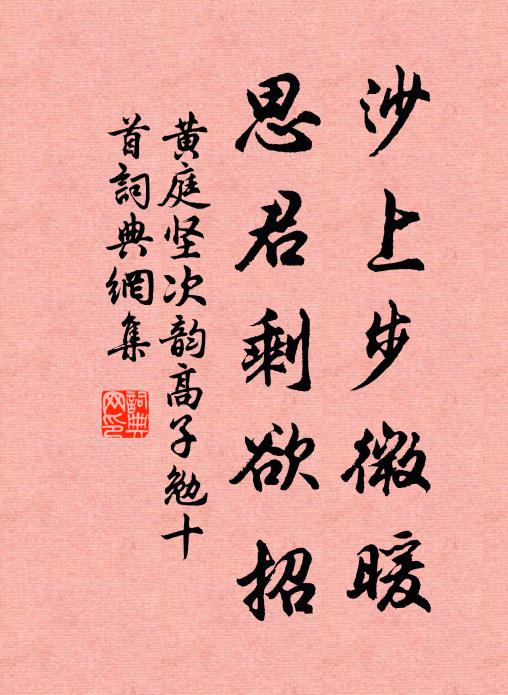 沙上步微暖
思君剩欲招
黄庭坚次韵高子勉十
首詞典網集
詞典
网印